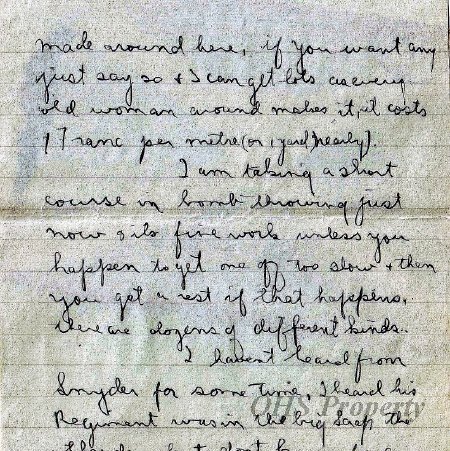 made around here, if you want any
just say so & I can get lots as every
old woman around makes it, it costs
1 Franc per metre (or 1 yard nearly).
I am taking a short
course in bomb throwing just
now & its fine work unless you
happen to get one off too slow & then
you get a rest if that happens,
there are dozens of different kinds.
I havent heard from
Snyder for some time, I heard his
Regiment was in the big scrap tho
OHS Property